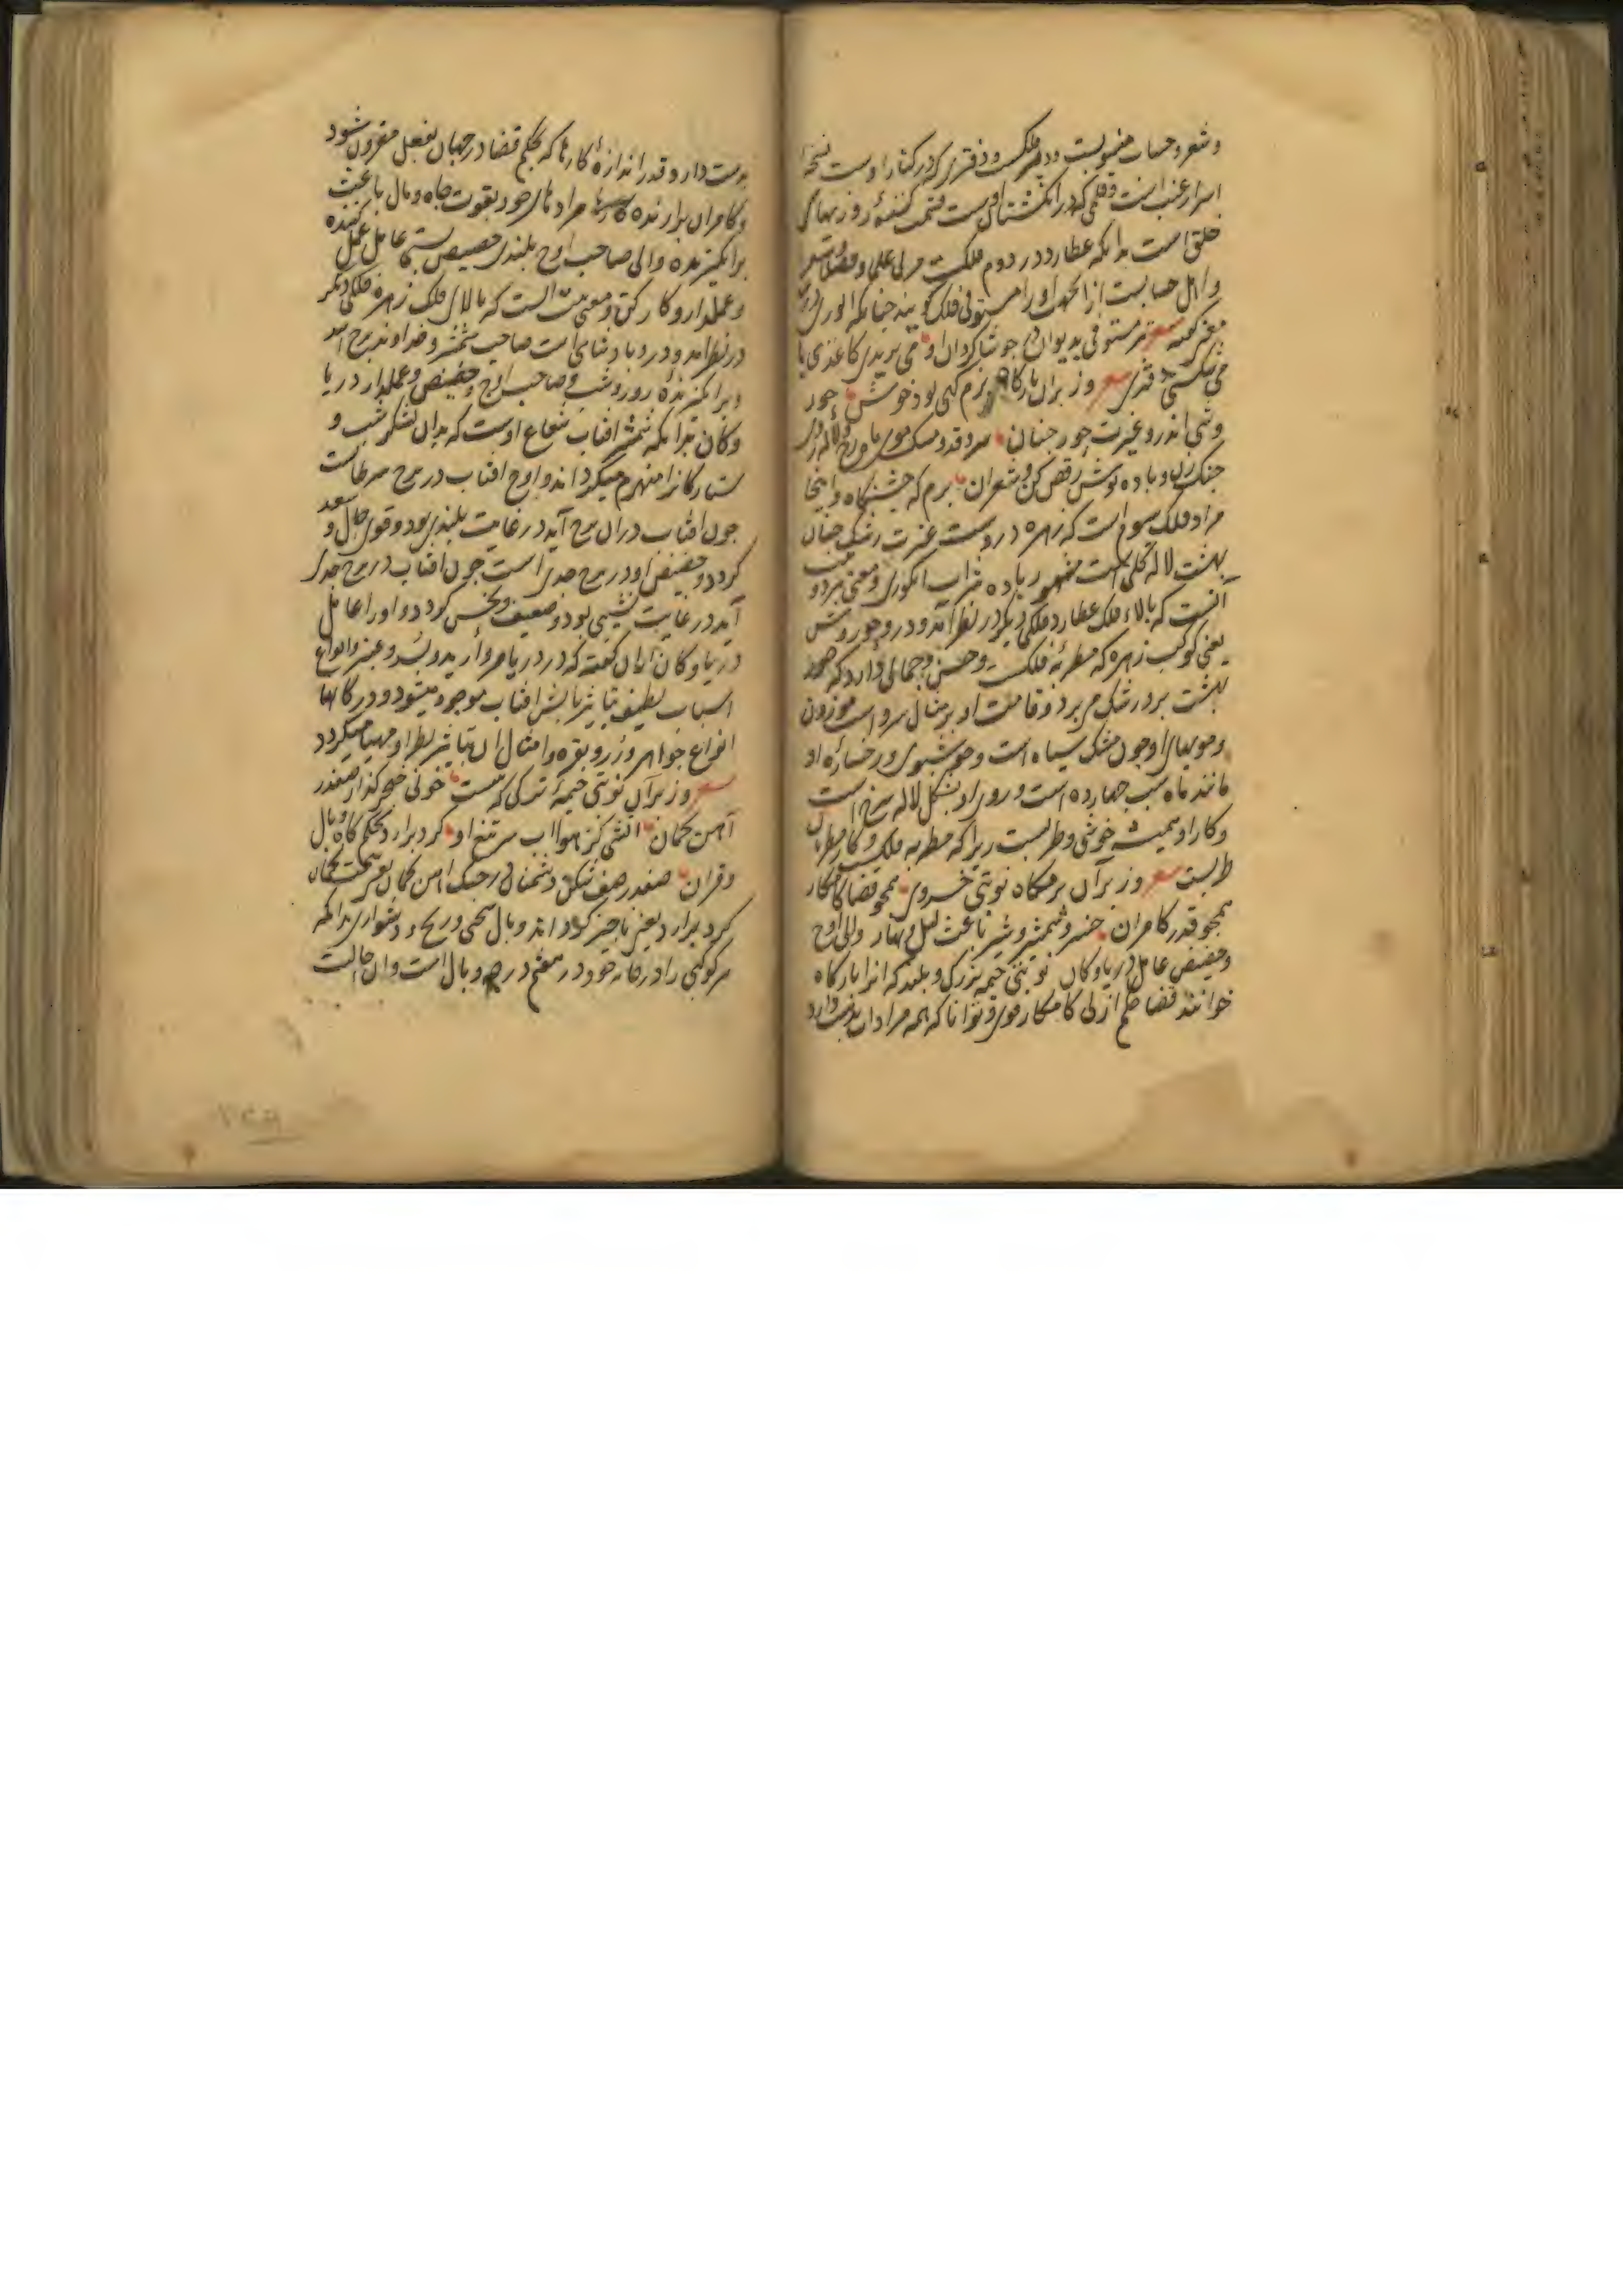 و شعر و حساب منسوبست و دبیر فلکست و دفتری که در کنار اوست نسخهٔ
اسرار غیب است و قلمی که در انگشتان اوست قسمت کنندهٔ روزیهای
خلق است بدانکه عطارد در دوم فلکست مربی علما و فضلا و شعرا
و اهل حسابست از انجهت او را مستوفی فلک گویند چنانکه انوری
گفته شعر مستوفی بدیوان چو شاگردان او می بریدی کاغذی یا
می شکستی شعر وز بر آن بارگاه بزم گهی بود خوش حور
وشی اندرو غیرت حور جنان سرو قد و مشک موی ماه رخ و لاله روی
چنک زن و باده نوش رقص کن و شعر ان بزم که جشنگاه و اینجا
مراد فلک سوم است که زهره دروست غیرت رشک جنان
بهشت لاله گلی است مشهور باده شراب انگوری و معنی بیت
آنست که بالاء فلک عطارد فلکی دیگر در نظر آمد و درو حور وش
یعنی کوکب زهره که مطربهٔ فلکست و حسن و جمالی دارد که حور
بهشت برو رشک می برد و قامت او بر مثال سرو است موزون
و مویهای او چون مشک سیاه است و خوشبوی و رخسارهٔ او
مانند ماه شب چهارده است و روی او بشکل لاله سرخ است
و کار او همیشه خوشی و طربست زیرا که مطربه فلکست و کار مطربان
طربست شعر وز بر آن بزمگاه نوبتی خسروی همچو قضا کامکار
همچو قدر کامران خسرو شمشیر و شیر باعث لیل و نهار والی اوج
و حضیض عامل دریا و کان نوبتی خیمه بزرک و بلند که انرا بارگاه
خوانند قضا حکم ازلی کامکار قوی و توانا که همه مرادات بدست دارد
بدست دارد و قدر اندازهٔ کارها که بحکم قضا در جهان بفعل مقرون شود
و کامران برارنده مرادهای خود بقوت جاه و مال باعث
برانگیزنده والی صاحب اوج بلندی حضیض پستی عامل عمل کننده
و عملدار و کارکن و معنی بیت آنست که بالای فلک زهره فلکی دیگر
در نظر امد و درو پادشاهی است صاحب شمشیر و خداوند برج اسد
و برانگیزندهٔ روز و شب و صاحب اوج و حضیض و عملدار دریا
و کان بدانکه شمشیر افتاب شعاع اوست که بدان لشکر شب و
ستارگانرا منهزم میگرداند و اوج افتاب در برج سرطانست
چون افتاب در ان برج آید در غایت بلندی بود و قوی حال و سعد
گردد و حضیض او در برج جدی است چون افتاب در برج جدی
آید در غایت پستی بود و ضعیف و نحس گردد و او را عامل
دریا و کان از ان گفته که در دریا مروارید و بسد و عنبر و انواع
اسباب لطیف بتاثیر تابش افتاب موجود میشود و در کانها
انواع جواهر و زر و نقره و امثال ان بتاثیر نظر او مهیا میگردد
شعر وز بر آن نوبتی خیمهٔ ترکی که هست خونی خنجر گذار صفدر
آهن کمان آتش کز هوا آب سر تیغ او گرد برارد بحکم گاه وبال
و قران صفدر صف شکن دشمنان در جنک آهن کمان یعنی سخت کمان
گرد برارد یعنی ناچیز گرداند وبال سختی و رنج و دشواری بدانکه
هر کوکبی را در خانه خود و در هفتم درجه وبال است و ان حالت